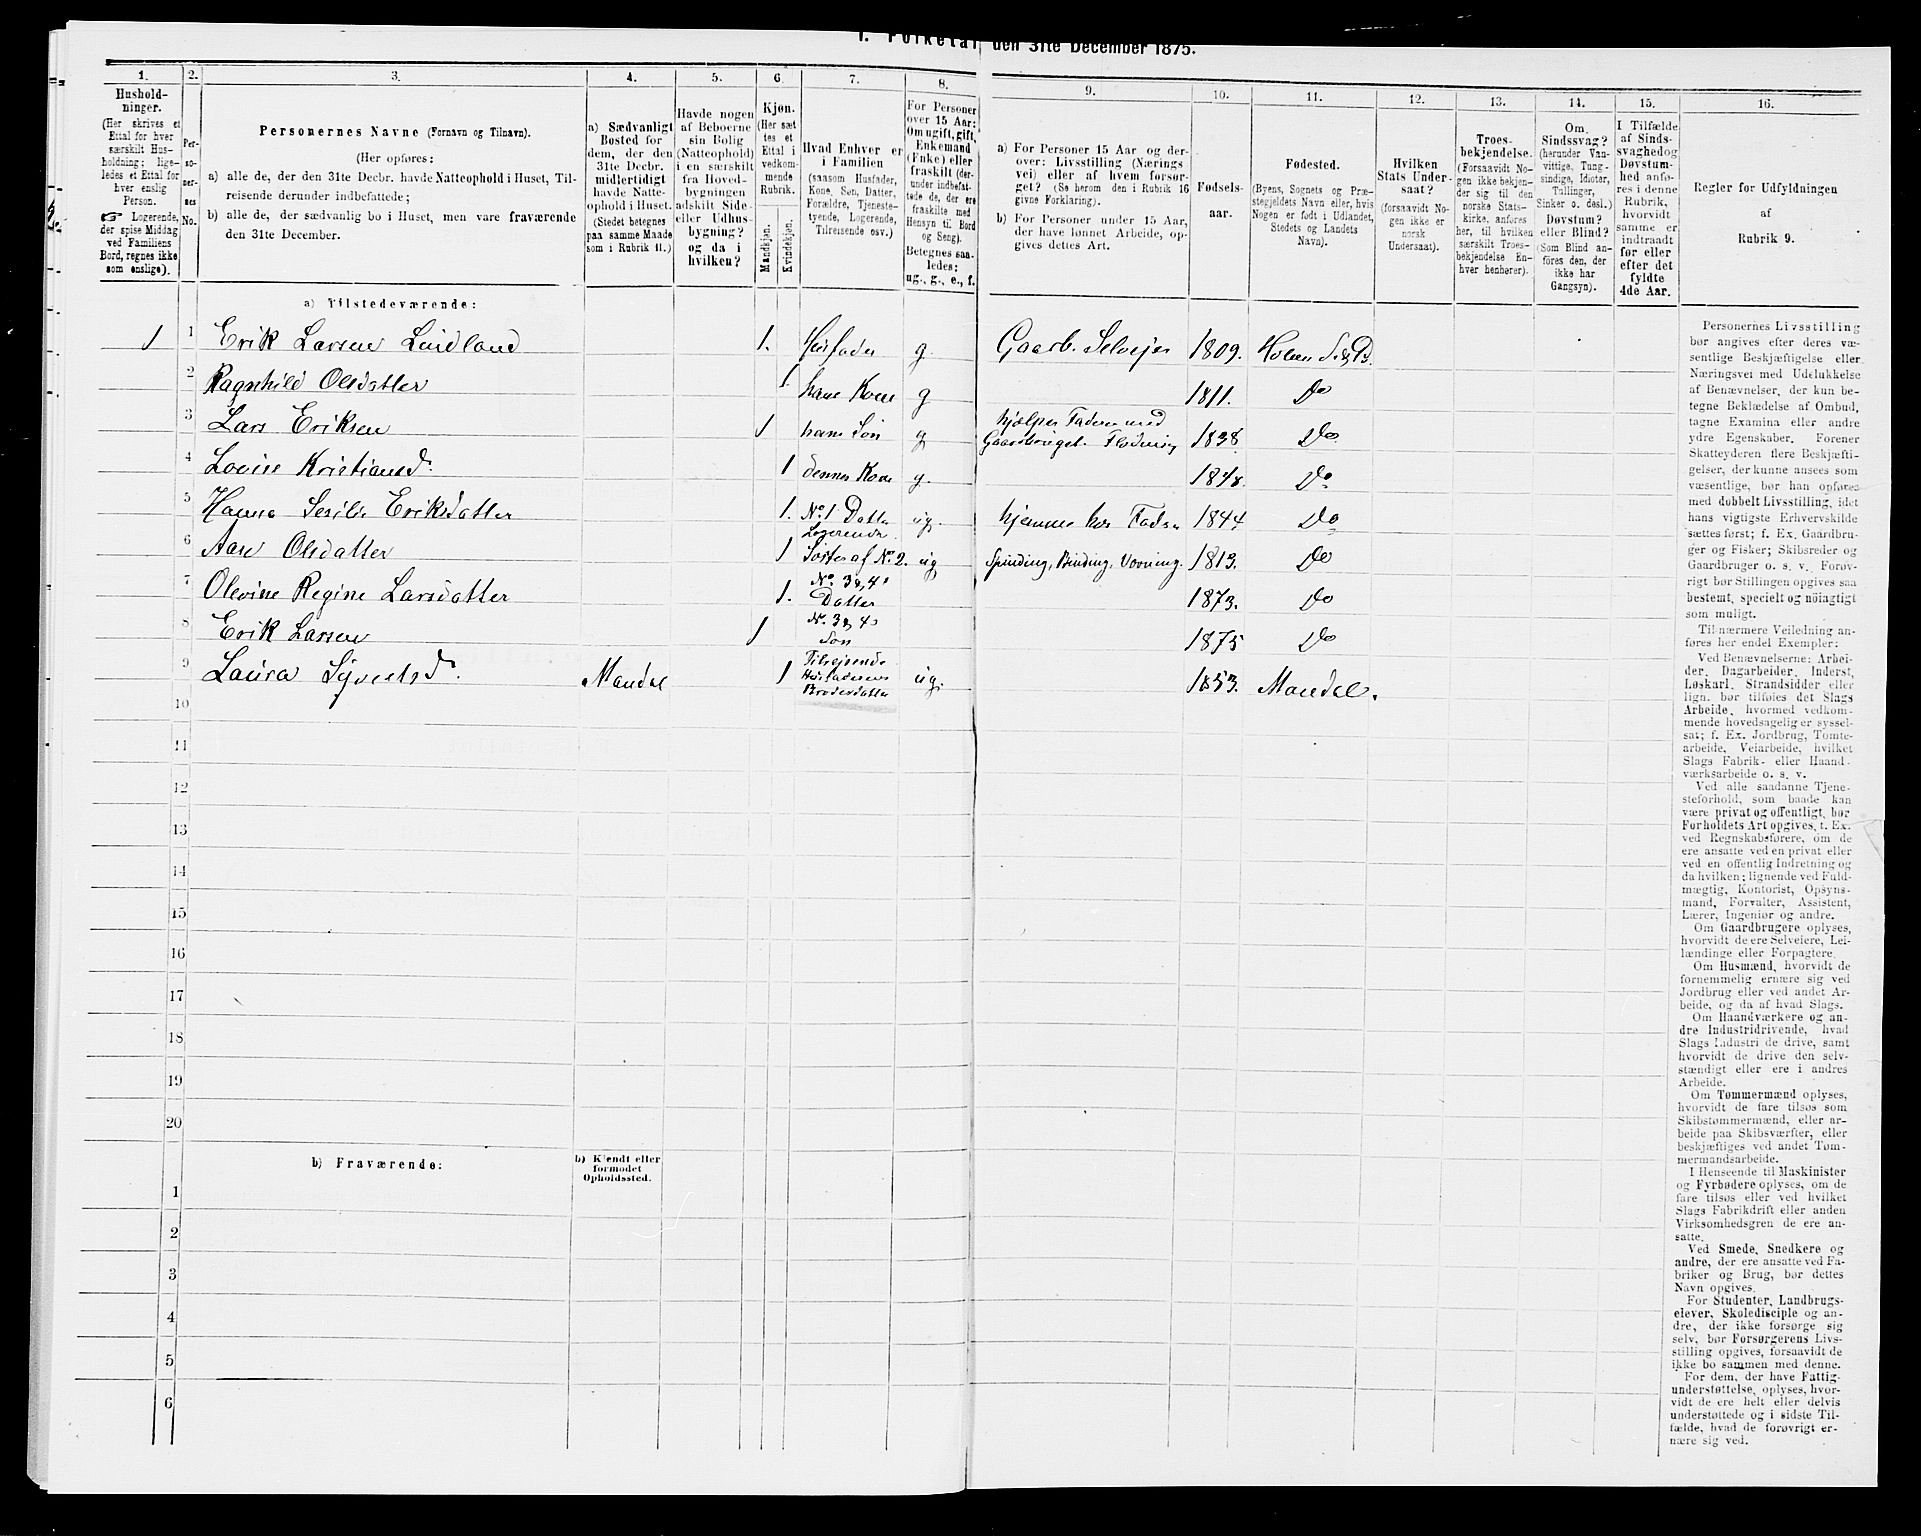 1. Folketal den 31te December 1875.
1. 2. 3. 4. 5. 6. 7. 8. 9. 10. 11. 12. 13. 14. 15. 16.
Hushold-
ninger.
(Her skrives et
Ettal for hver
særskilt Hus-
holdning; lige-
ledes et Ettal for
hver enslig
Person.
☞ Logerende,
der spise Middag
ved Familiens
Bord, regnes ikke
som enslige).
Per-
so-
ner-
nes
No.
Personernes Navne (Fornavn og Tilnavn).
(Her opføres:
a) alle de, der den 31te Decbr. havde Natteophold i Huset, Til-
reisende derunder indbefattede;
b) alle de, der sædvanlig bo i Huset, men vare fraværende
den 31te December.
a) Sædvanligt
Bosted for
dem, der den
31te Decbr.
midlertidigt
havde Natte-
ophold i Huset.
(Stedet betegnes
paa samme Maade
som i Rubrik 11.)
Havde nogen
af Beboerne
sin Bolig
(Natteophold)
i en særskilt
fra Hoved-
bygningen
adskilt Side-
eller Udhus-
bygning?
og da i
hvilken?
Kjøn.
(Her sæt
tes et
Ettal i
vedkom-
mende
Rubrik.
Mandkjøn.
Kvindekjøn.
Hvad Enhver er
i Familien
(saasom Husfader,
Kone, Søn, Datter,
Forældre, Tjeneste-
tyende, Logerende,
Tilreisende osv.)
For Personer
over 15 Aar:
Om ugift, gift,
Enkemand
(Enke) eller
fraskilt (der-
under indbefat-
tede de, der ere
fraskilte med
Hensyn til Bord
og Seng).
Betegnes saa-
ledes:
ug., g., e., f.
a) For Personer 15 Aar og der-
over: Livsstilling (Nærings
vei) eller af hvem forsør-
get? (Se herom den i Rubrik 16
givne Forklaring).
b) For Personer under 15 Aar,
der have lønnet Arbeide, op-
gives dettes Art.
Fødsels-
aar.
Fødested.
(Byens, Sognets og Præ-
stegjeldets Navn eller, hvis
Nogen er født i Udlandet,
Stedets og Landets
Navn).
Hvilken
Stats Under-
saat?
(forsaavidt No-
gen ikke er
norsk
Undersaat).
Troes-
bekjendelse.
(Forsaavidt No-
gen ikke bekjen-
der sig til den
norske Stats-
kirke, anføres
her, til hvilken
særskilt Troes-
bekjendelse En-
hver henhører).
Om
Sindssvag?
(herunder Van-
vittige, Tung-
sindige, Idioter,
Tullinger,
Sinker o. desl.)
Døvstum?
eller Blind?
(Som Blind an-
føres den, der
ikke har
Gangsyn).
I Tilfælde
af Sinds-
svaghed og
Døvstum-
hed anfø-
res i denne
Rubrik,
hvorvidt
samme er
indtraadt
før eller
efter det
fyldte
4de Aar.
Regler for Udfyldningen
af
Rubrik 9.
a) Tilstedeværende:
1 1 Erik Larsen Lindland 1. Husfader g. Gaardb. Selvejer 1809. Holum S & P.
2 Ragnhild Olsdatter 1 hans Kone g 1811. Do
3 Lars Eriksen 1 hans Søn g hjælper Faderen med Gaardbruget. Flødning 1838. Do
4 Lovise Kristiansd. 1 dennes Kone g. 1848. Do
5 Hanna Serilie Eriksdatter 1. No. 1 Datter ug. hjemme hos Fader 1844 Do
6 Aase Olsdatter 1 Logerende Søster af No. 2. ug Spinding, Binding, Vævning. 1813. Do
7 Olevine Regine Larsdatter 1. No. 3 & 4s Datter 1873. Do
8 Erik Larsen 1 No. 3 & 4s Søn 1875 Do
9 Laura Syvertsd. Mandal 1 Tilrejsende Husfaderens Brodersdatter ug. 1853. Mandal.
10
11
12
13
14
15
16
17
18
19
20
b) Fraværende:
b) Kjendt eller
formodet
Opholdssted.
1
2
3
4
5
6
Personernes Livsstilling
bør angives efter deres væ-
sentlige Beskjæftigelse eller
Næringsvei med Udelukkelse
af Benævnelser, der kun be-
tegne Beklædelse af Ombud,
tagne Examina eller andre
ydre Egenskaber. Forener
Skatteyderen flere Beskjæfti-
gelser, der kunne ansees som
væsentlige, bør han opføres
med dobbelt Livsstilling, idet
hans vigtigste Erhvervskilde
sættes først; f. Ex. Gaardbru-
ger og Fisker; Skibsreder og
Gaardbruger o. s. v. Forøv-
rigt bør Stillingen opgives saa
bestemt, specielt og nøiagtigt
som muligt.
Til nærmere Veiledning an-
føres her endel Exempler:
Ved Benævnelserne: Arbei-
der, Dagarbeider, Inderst,
Løskarl, Strandsidder eller
lign. bør tilføies det Slags
Arbeide, hvormed vedkom-
mende hovedsagelig er syssel-
sat; f. Ex. Jordbrug, Tomte-
arbeide, Veiarbeide, hvilket
Slags Fabrik- eller Haand-
værksarbeide o. s. v.
Ved alle saadanne Tjene-
steforhold, som baade kan
være privat og offentligt, bør
Forholdets Art opgives, t. Ex.
ved Regnskabsførere, om de
ere ansatte ved en privat eller
ved en offentlig Indretning og
da hvilken; lignende ved Fuld-
mægtig, Kontorist, Opsyns-
mand, Forvalter, Assistent,
Lærer, Ingeniør og andre.
Om Gaardbrugere oplyses,
hvorvidt de ere Selveiere, Lei-
lændinge eller Forpagtere.
Om Husmænd, hvorvidt de
fornemmelig ernære sig ved
Jordbrug eller ved andet Ar-
beide, og da af hvad Slags.
Om Haandværkere og an-
dre Industridrivende, hvad
Slags Industri de drive, samt
hvorvidt de drive den selv-
stændigt eller ere i andres
Arbeide.
Om Tømmermænd oplyses,
hvorvidt de fare tilsøs som
Skibstømmermænd, eller ar-
beide paa Skibsværfter, eller
beskjæftiges ved andet Tøm-
mermandsarbeide.
I Henseende til Maskinister
og Fyrbødere oplyses, om de
fare tilsøs eller ved hvilket
Slags Fabrikdrift eller anden
Virksomhedsgren de ere an-
satte.
Ved Smede, Snedkere og
andre, der ere ansatte ved Fa-
briker og Brug, bør dettes
Navn opgives.
For Studenter, Landbrugs-
elever, Skoledisciple og an-
dre, der ikke forsørge sig
selv, bør Forsørgerens Livs-
stilling opgives, forsaavidt de
ikke bo sammen med denne.
For dem, der have Fattig-
understøttelse, oplyses, hvor-
vidt de ere helt eller delvis
understøttede og i sidste Til-
fælde, hvad de forøvrigt er-
nære sig ved.